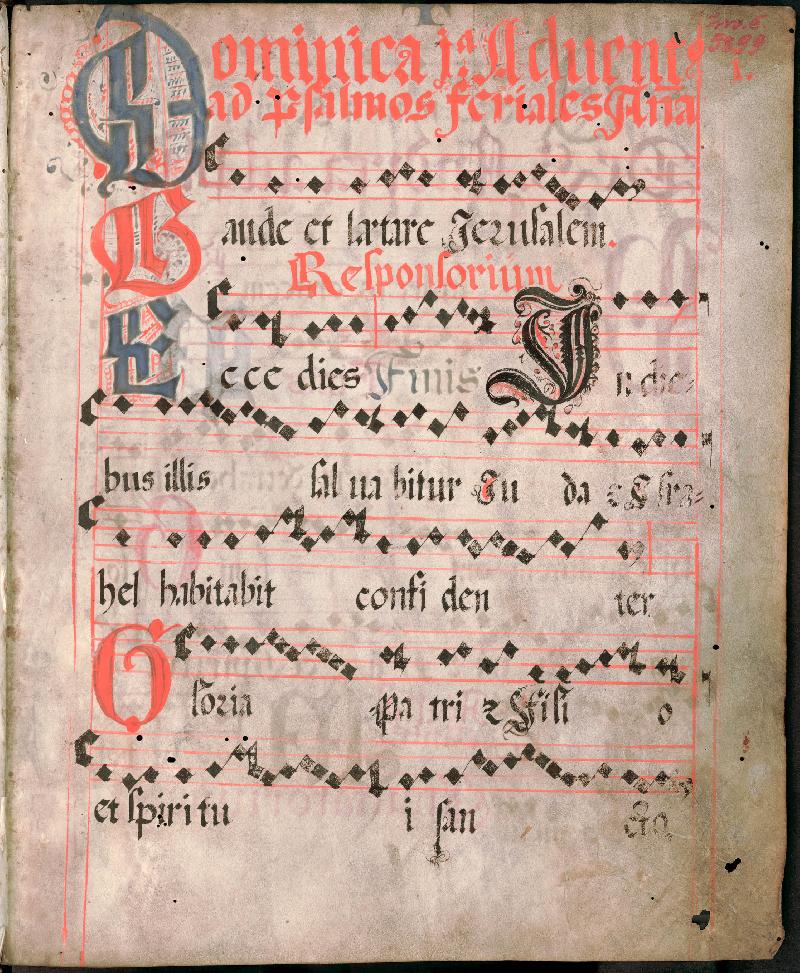 Dominica j.ª Aduent9
ad psalmos feriales Aña
Gaude et lætare Jerusalem.
Responsorium
Ecce dies Finis In die-
bus illis sal ua bitur Iu da & Isra-
hel habitabit confi den ter
Gloria Pa tri & Fili o
et spiri tu i san cto